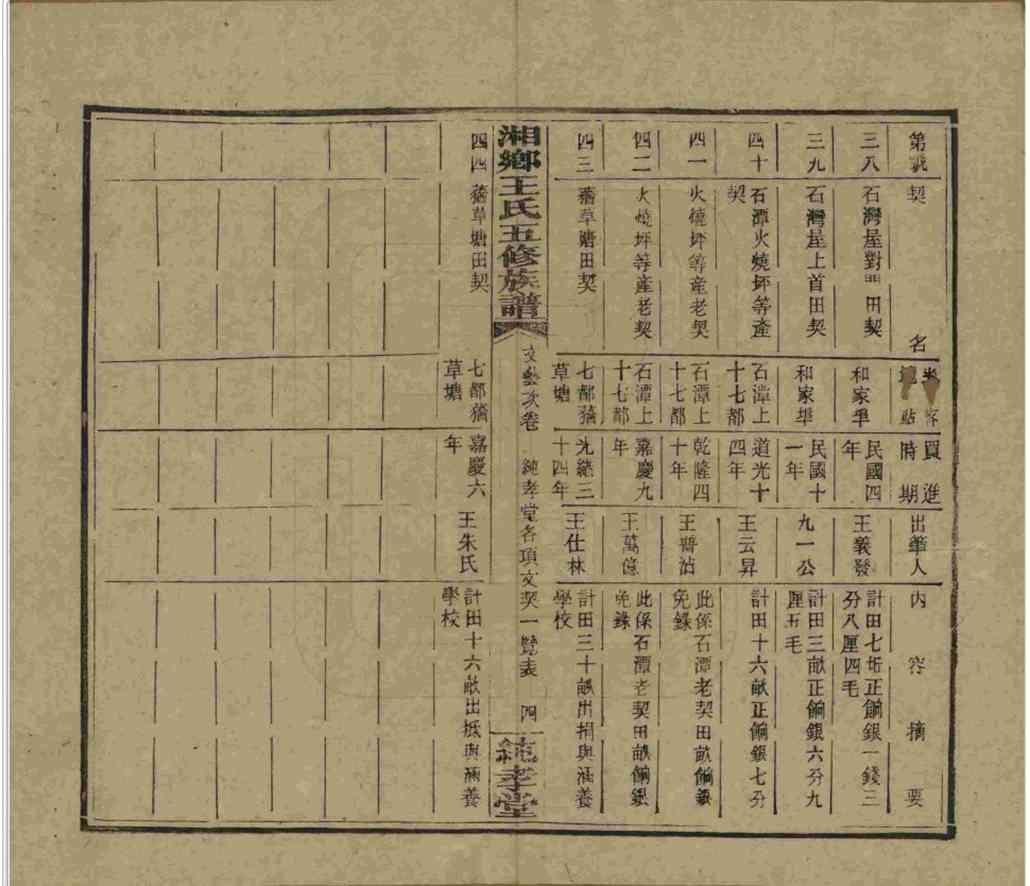 第號
契名
地點
買進時期
出筆人
內容摘要
三八
石灣屋對門田契
和家埠
民國四年
王義發
計田七坵正餉銀一錢三分八厘四毛
三九
石灣屋上首田契
和家埠
民國十一年
九一公
計田三畝正餉銀六分九厘五毛
四十
石潭火燒坪等產契
石潭上十七都
道光十四年
王云昇
計田十六畝正餉銀七分
四一
火燒坪等產老契
石潭上十七都
乾隆四十年
王晋治
此係石潭老契田畝餉銀免錄
四二
火燒坪等產老契
石潭上十七都
嘉慶九年
王萬億
此係石潭老契田畝餉銀免錄
四三
蕕草塘田契
七都蕕草塘
光緒三十四年
王仕林
計田三十畝出捐與涵養學校
湘鄉王氏五修族譜
文藝次卷
純孝堂各項文契一覽表
四
純孝堂
四四
蕕草塘田契
七都蕕草塘
嘉慶六年
王朱氏
計田十六畝出抵與涵養學校